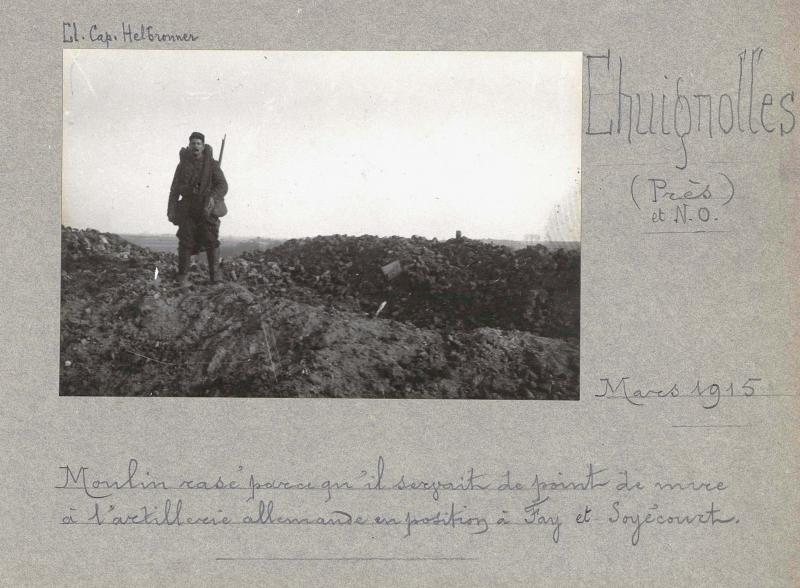 Cl. Cap. Helbronner
Chuignolles
(Près)
et N.O.
Mars 1915
Moulin rasé parce qu'il servait de point de mire
à l'artillerie allemande en position à Fay et Soyécourt.